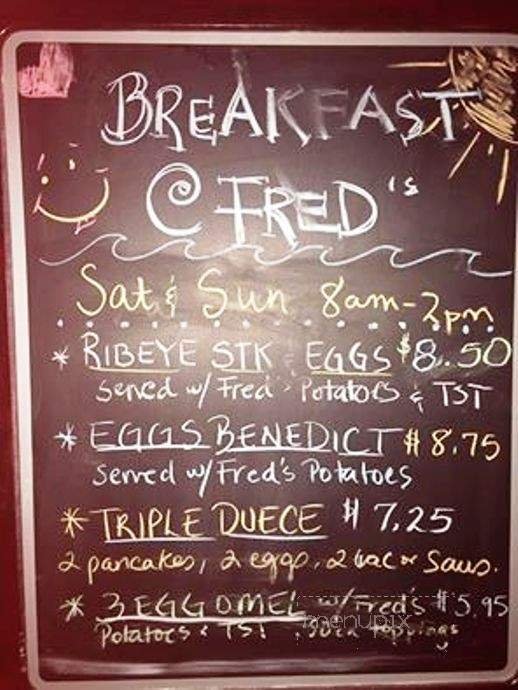 BREAKFAST
@ FRED's
Sat & Sun 8am-2pm
* RIBEYE STK EGGS $8.50
Served w/ Fred's Potatoes & TST
* EGGS BENEDICT $8.75
Served w/ Fred's Potatoes
* TRIPLE DUECE $7.25
2 pancakes, 2 eggs, 2 bac or Saus.
* 3 EGG OMEL w/ Fred's $5.95
Potatoes & TST toppings
menupix